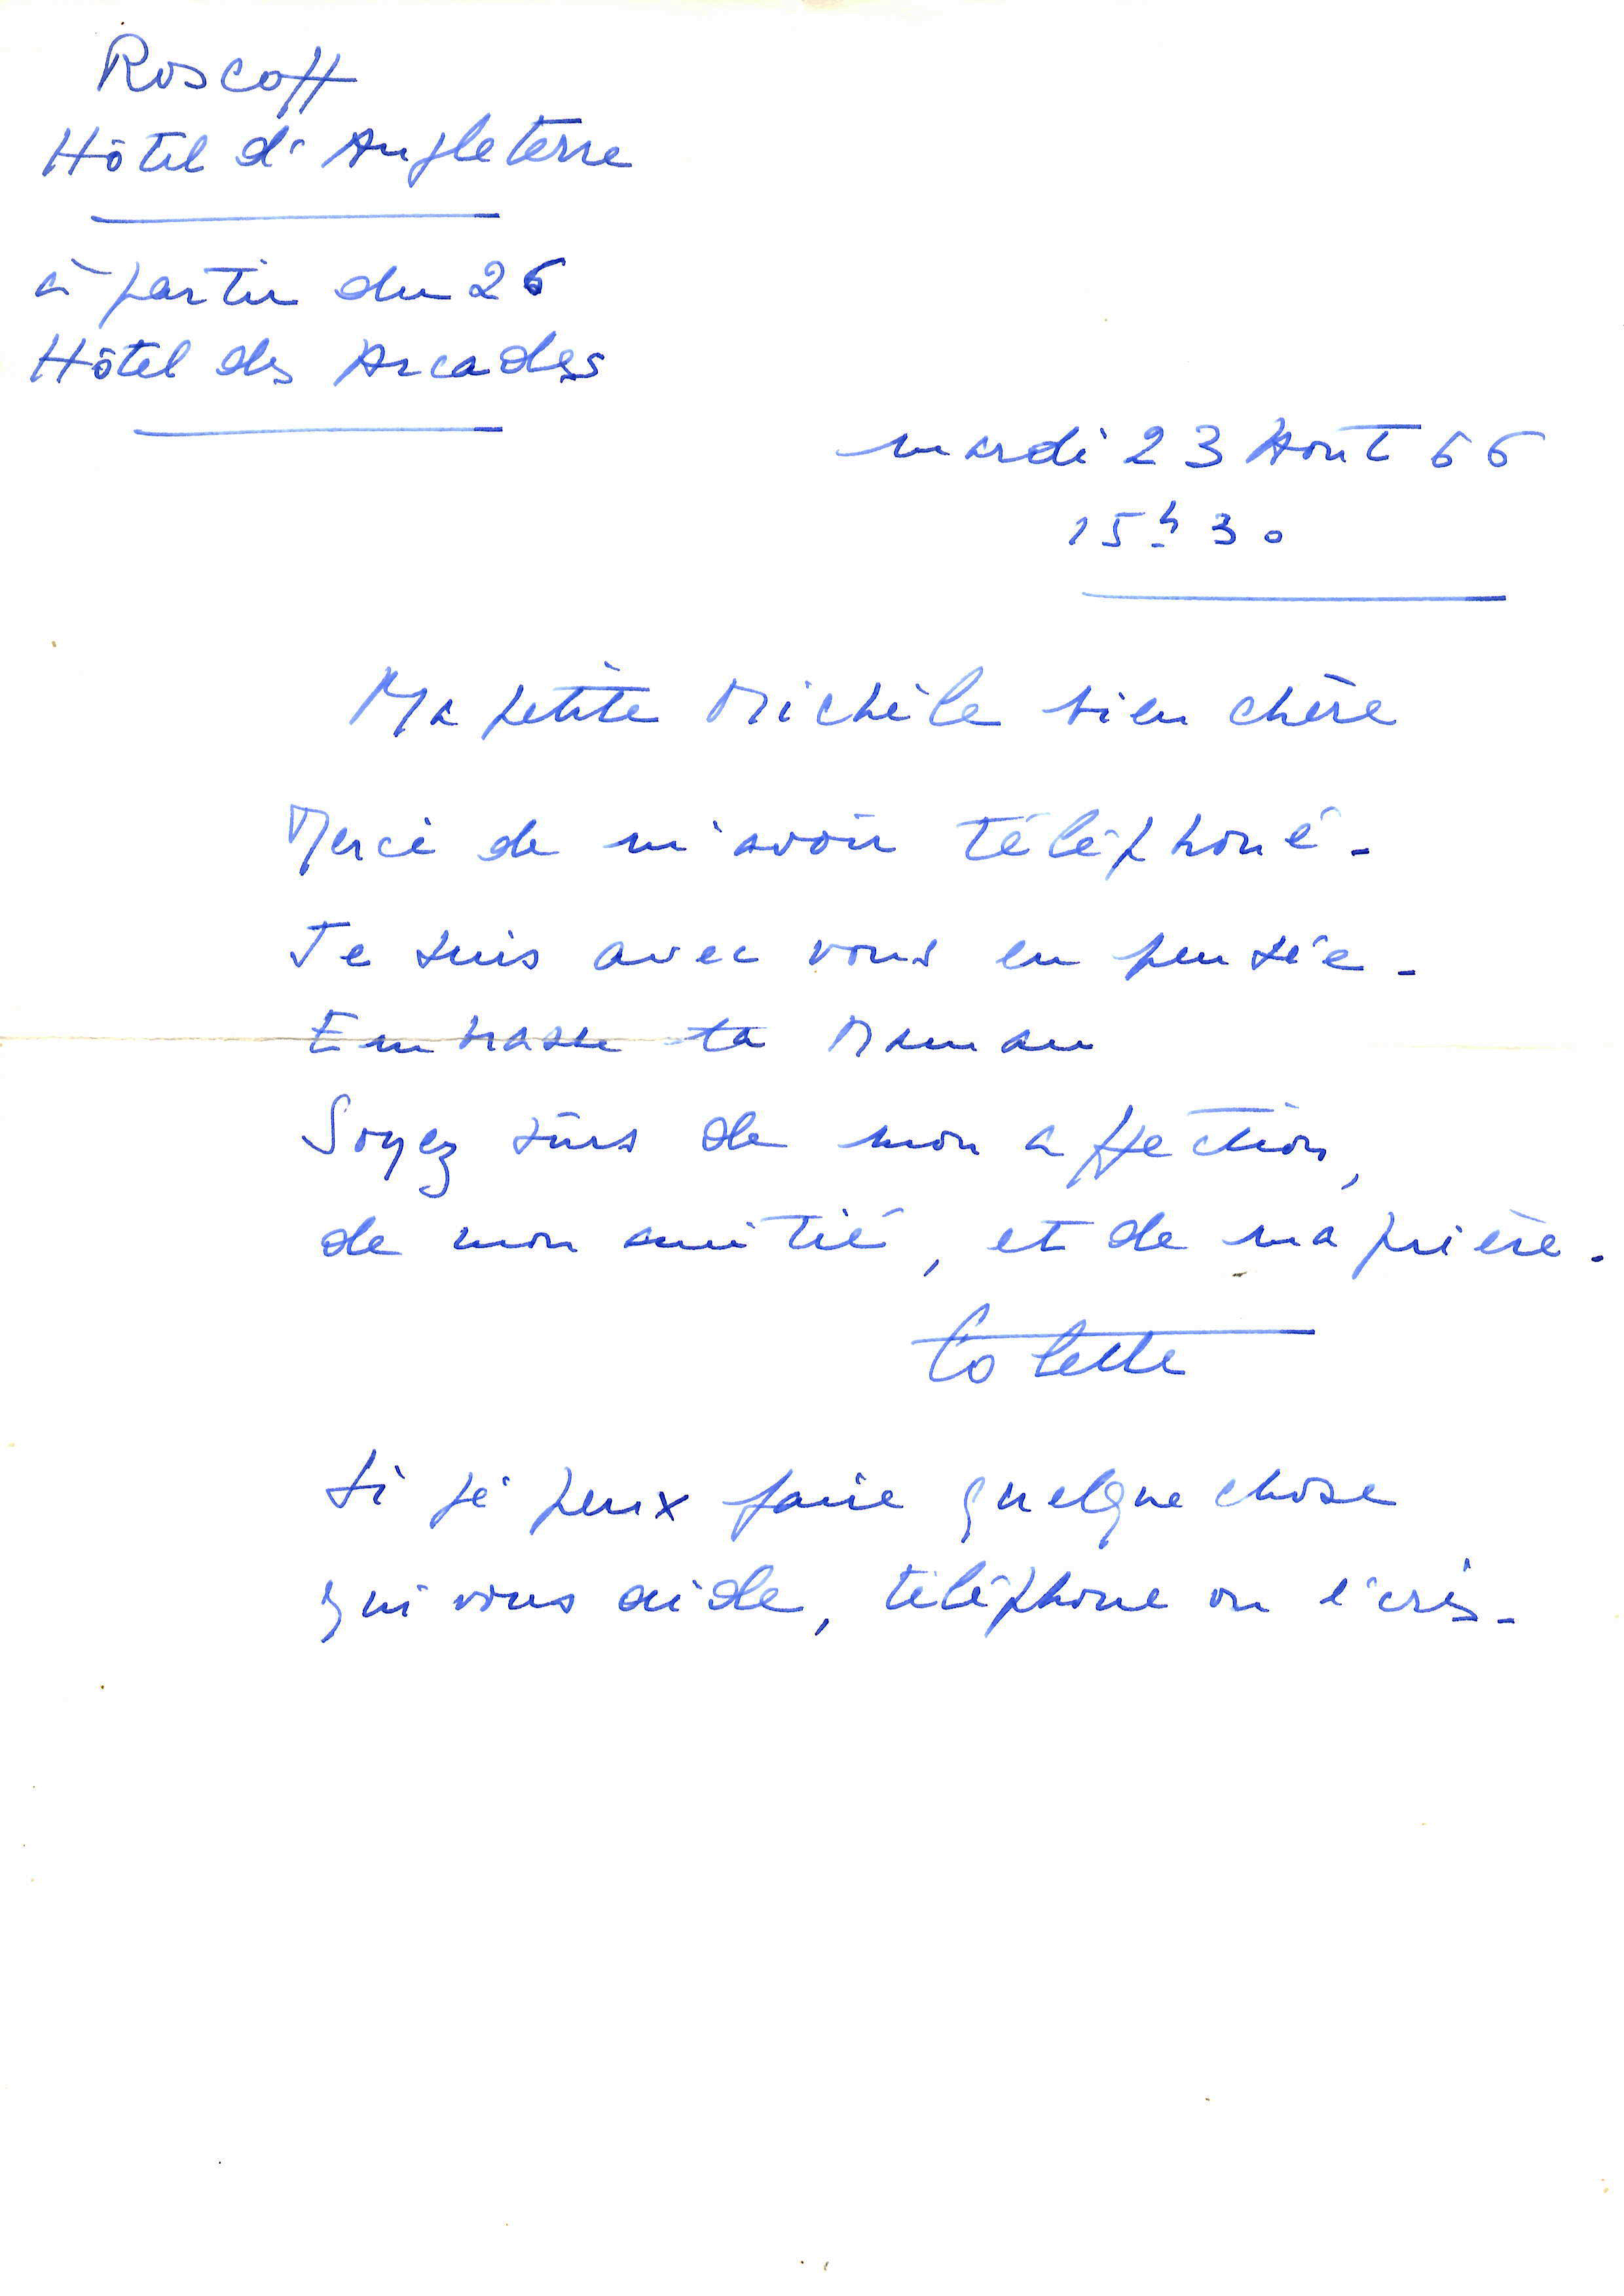 Roscoff
Hôtel d'Angleterre
à partir du 26
Hôtel des Arcades
mardi 23 Août 66
15h 30
Ma petite Michèle bien chère
Merci de m'avoir téléphoné -
Je suis avec vous en pensée -
Embrasse ta Maman
Soyez sûrs de mon affection,
de mon amitié, et de ma prière.
Colette
Si je peux faire quelque chose
qui vous aide, téléphone ou écris -